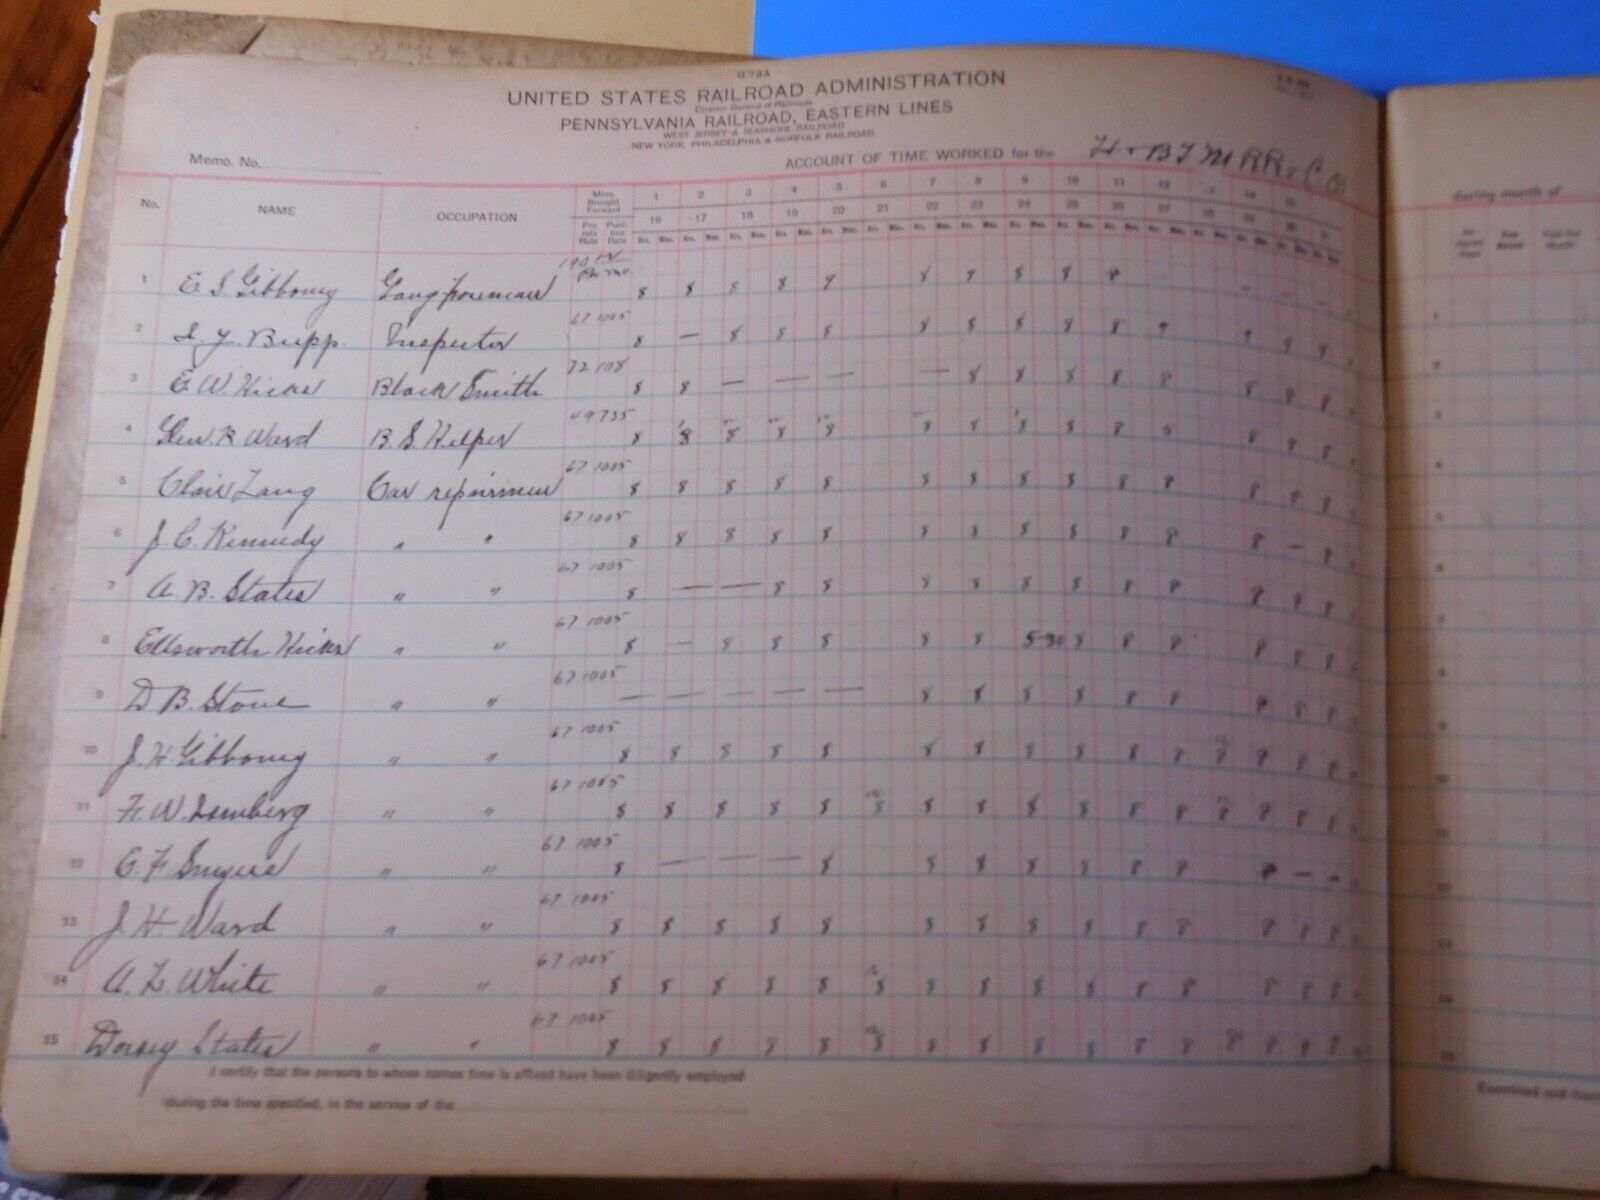 G 72A
UNITED STATES RAILROAD ADMINISTRATION
Director General of Railroads
PENNSYLVANIA RAILROAD, EASTERN LINES
WEST JERSEY & SEASHORE RAILROAD
NEW YORK, PHILADELPHIA & NORFOLK RAILROAD
Memo. No. ACCOUNT OF TIME WORKED for the H & B T M RR & C Co during month of
No. NAME OCCUPATION Mins. Brought Forward 1 2 3 4 5 6 7 8 9 10 11 12 14 15
Pro rata Rate Punitive Rate 16 17 18 19 20 21 22 23 24 25 26 27 28 29 30 31
Hrs. Min. Hrs. Min. Hrs. Min. Hrs. Min. Hrs. Min. Hrs. Min. Hrs. Min. Hrs. Min. Hrs. Min. Hrs. Min. Hrs. Min. Hrs. Min.
1 E S Gibboney Gang foreman 190 8 8 8 8 8 8 8 8 8 8 — — — —
2 Bupp. Inspector 67 1005 8 — 8 8 8 8 8 8 8 8 8 8 8 8
3 E W. Hicks Black Smith 72 108 8 8 — — — — 8 8 8 8 8 8 8 8
4 Ward B. S. Helper 49 735 8 8 8 8 8 8 8 8 8 8 8 8 8 8
5 Clair Lang Car repairmen 67 1005 8 8 8 8 8 8 8 8 8 8 8 8 8 8
6 J. C. Kennedy " " 67 1005 8 8 8 8 8 8 8 8 8 8 8 8 — 8
7 A. B. States " " 67 1005 8 — — 8 8 8 8 8 8 8 8 8 8 8
8 Ellsworth Hicks " " 67 1005 8 — 8 8 8 8 8 5-30 8 8 8 8 8 8
9 D B. Stone " " 67 1005 — — — — — 8 8 8 8 8 8 8 8 8
10 J. H. Gibboney " " 67 1005 8 8 8 8 8 8 8 8 8 8 8 8 8 8 8
11 F. W. Isenberg " " 67 1005 8 8 8 8 8 8 8 8 8 8 8 8 8 8 8 8
12 C. F. Snyers " " 67 1005 8 — — — 8 8 8 8 8 8 8 8 — —
13 J. H. Ward " " 67 1005 8 8 8 8 8 8 8 8 8 8 8 8 8 8
14 A. L. White " " 67 1005 8 8 8 8 8 8 8 8 8 8 8 8 8 8 8
15 Dorsey States " " 67 1005 8 8 8 8 8 8 8 8 8 8 8 8 8 8 8 8
I certify that the persons to whose names time is affixed have been diligently employed
during the time specified, in the service of the
Examined and found